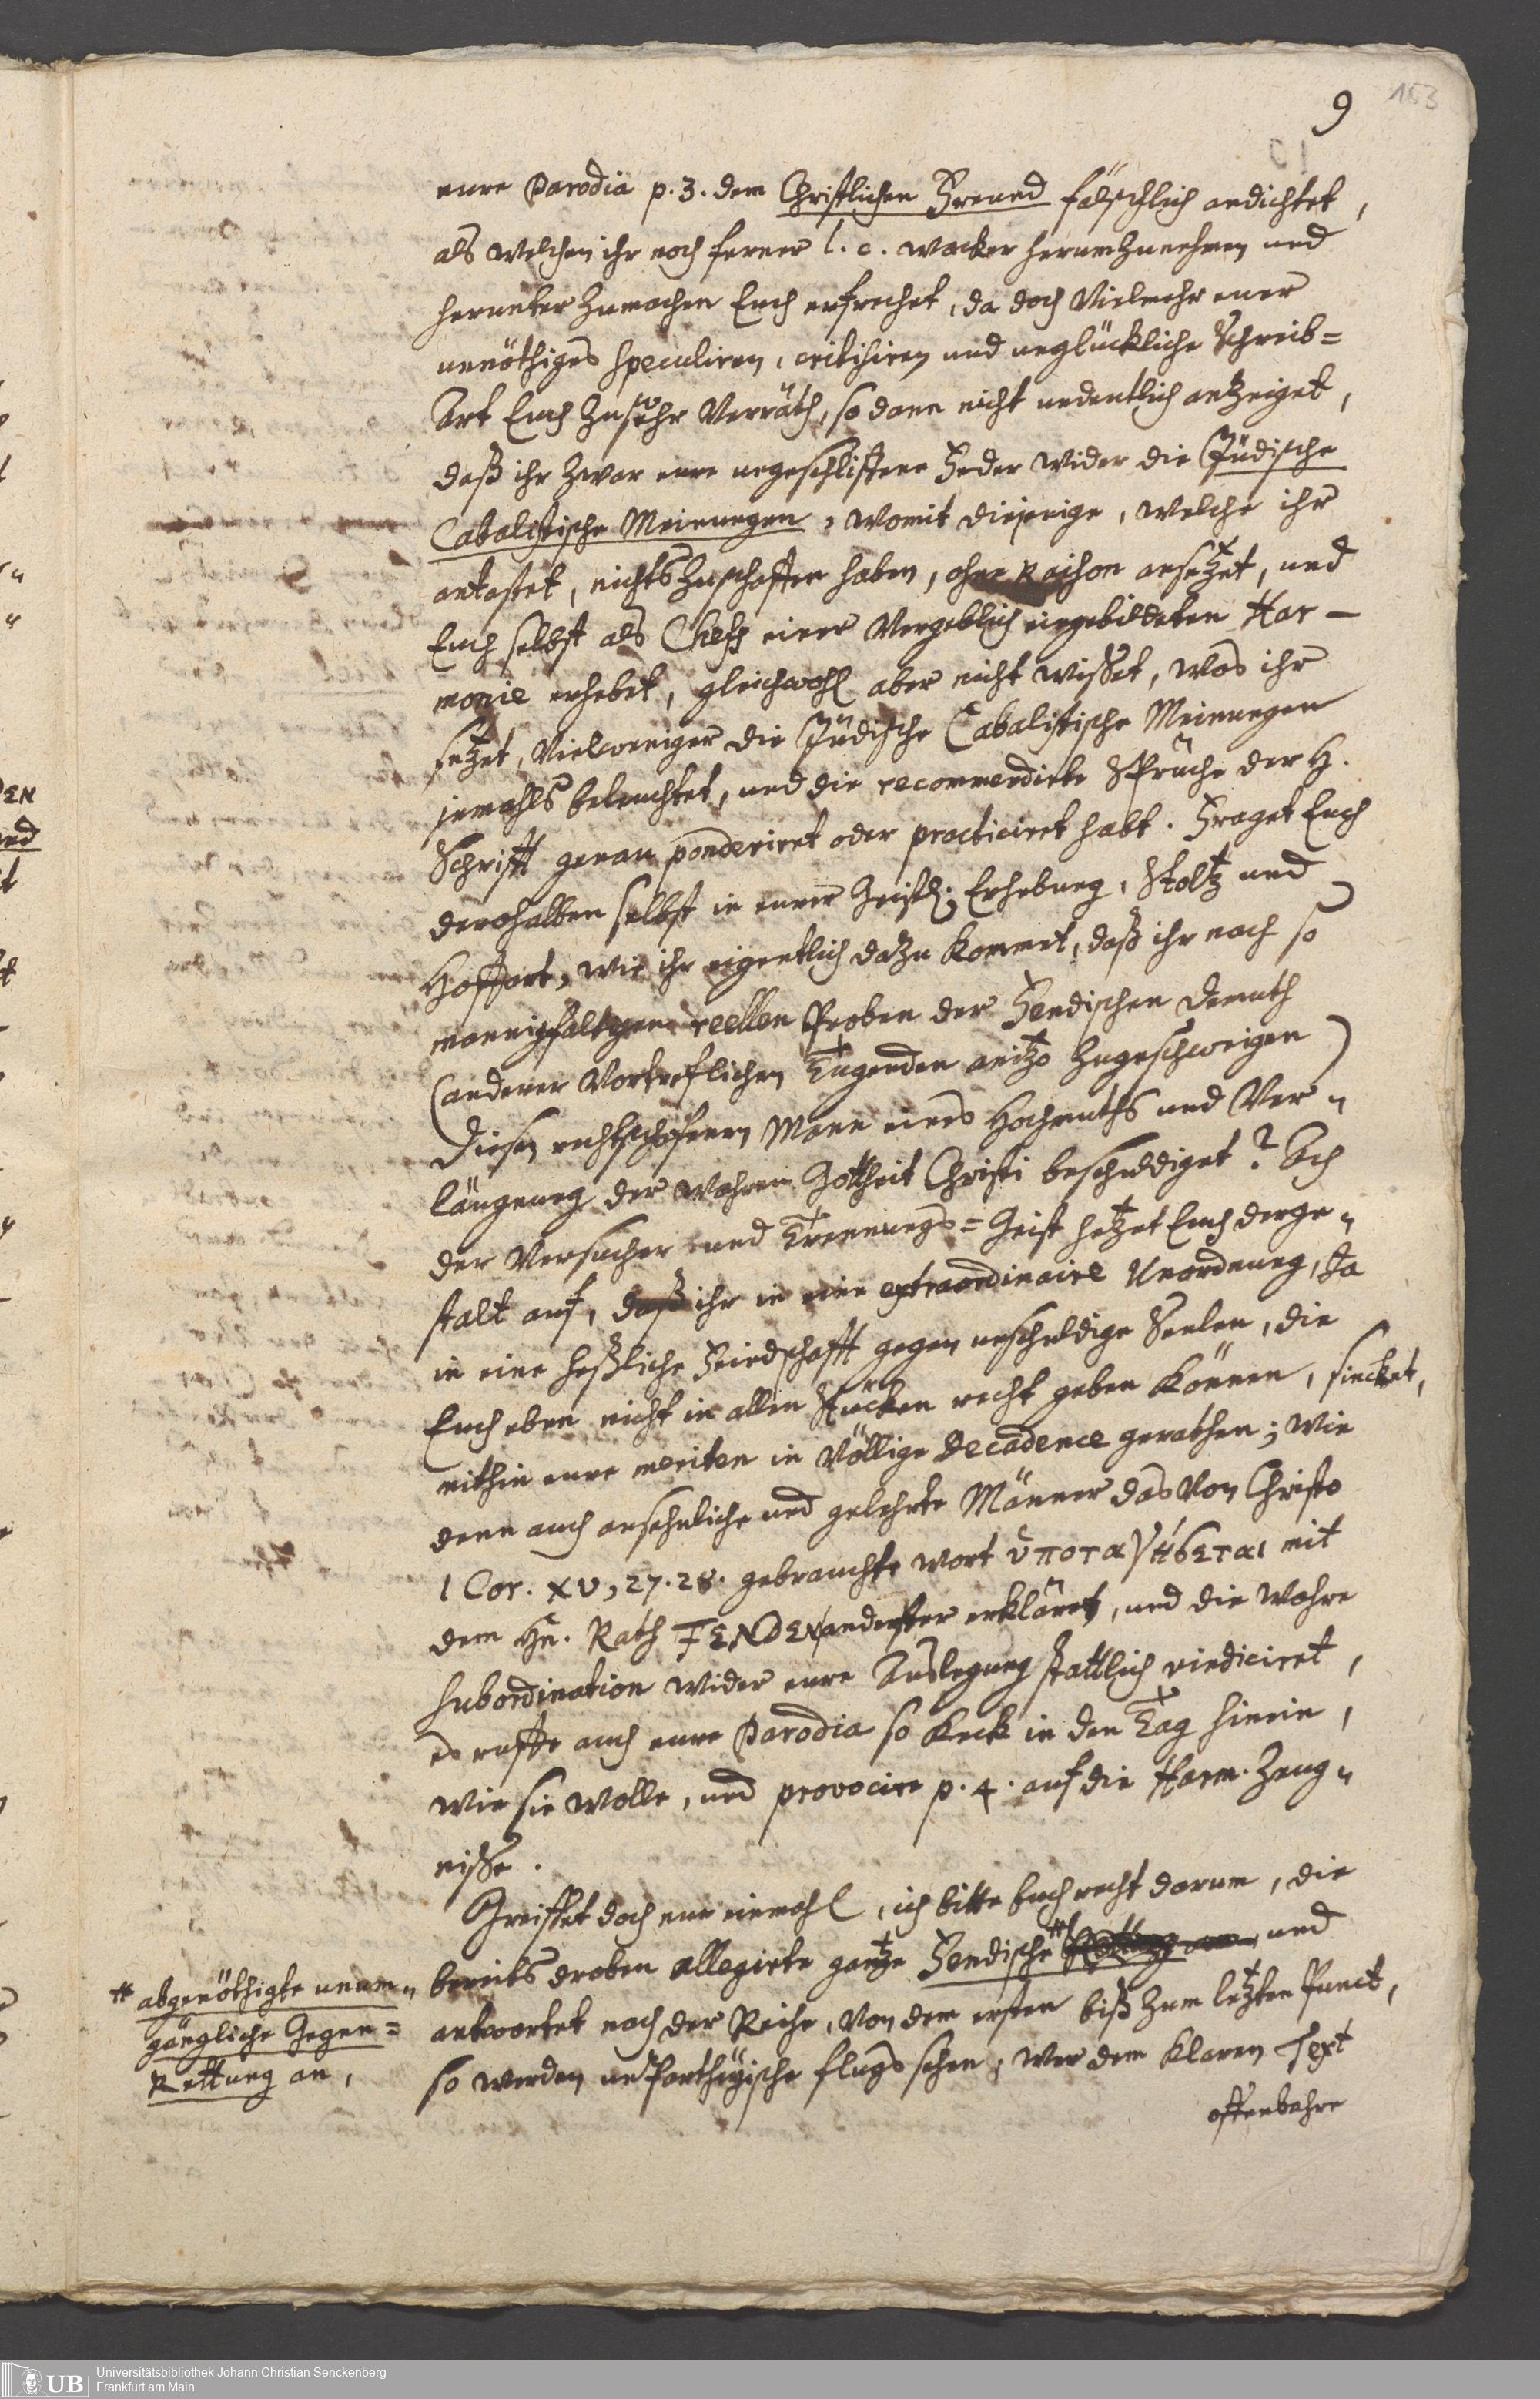 9
163
eure Parodia p. 3. dem Christlichen Freund fälschlich andichtet,
als welchen ihr noch ferner l. c. wacker herumzunehmen und
herunter zumachen Euch erfrechet, da doch Vielmehr euer
unnöthiges speculiren, critisiren und unglückliche Schreib=
Art Euch zusehr Verräth, so dann nicht undeutlich anzeiget,
daß ihr zwar eure ungeschliffene Feder wider die Jüdische
Cabalistische Meinungen, womit diejenige, welche ihr
antastet, nichts zuschaffen haben, ohne Raison ansetzet, und
Euch selbst als Cheff einer Vergeblich eingebildeten Har-
monie erhebet, gleichwohl aber nicht wisset, was ihr
setzet, Vielweniger die Jüdische Cabalistische Meinungen
jemahls beleuchtet, und die recommendirte Sprüche der H.
Schrifft genau ponderiret oder practiciret habt. Fraget Euch
derohalben selbst in eurer Geistl. Erhebung, Stoltz und
Hoffart, wie ihr eigentlich dazu kommet, daß ihr nach so
mannigfaltigen reellen Proben der Fendischen Demuth
(anderer Vortreflichen Tugenden anitzo zugeschweigen)
Diesen rechtschafenen Mann eines Hochmuths und Ver"
läugnung der wahren Gottheit Christi beschuldiget? Ach
der Versucher und Trennungs=Geist hetzet Euch derge"
stalt auf, daß ihr in eine extraordinaire Unordnung, Ja
in eine heßliche Feindschafft gegen unschuldige Seelen, die
Euch eben nicht in allen Stücken recht geben können, sincket,
mithin eure meriten in Völlige Decadence gerathen; wie
denn auch ansehnliche und gelehrte Männer das Von Christo
1 Cor. XV, 27. 28. gebrauchte Wort ὑποταγήσεται mit
dem Hn. Rath FENDEN anderster erkläret, und die wahre
Subordination wider eure Auslegung stattlich vindiciret,
es ruffe auch eure Parodia so keck in den Tag hinein,
wie sie wolle, und provocire p. 4. auf die Harm. Zeug"
nisse.
Greiffet doch nur einmahl, ich bitte Euch recht darum, die
bereits droben allegirte gantze Fendische # und
# abgenöthigte unum"
gängliche Gegen=
Rettung an,
antwortet nach der Reihe, Von dem ersten biß zum letzten Punct,
so werden unPartheyische flugs sehen, wer dem klaren Text
offenbahre
UB
Universitätsbibliothek Johann Christian Senckenberg
Frankfurt am Main